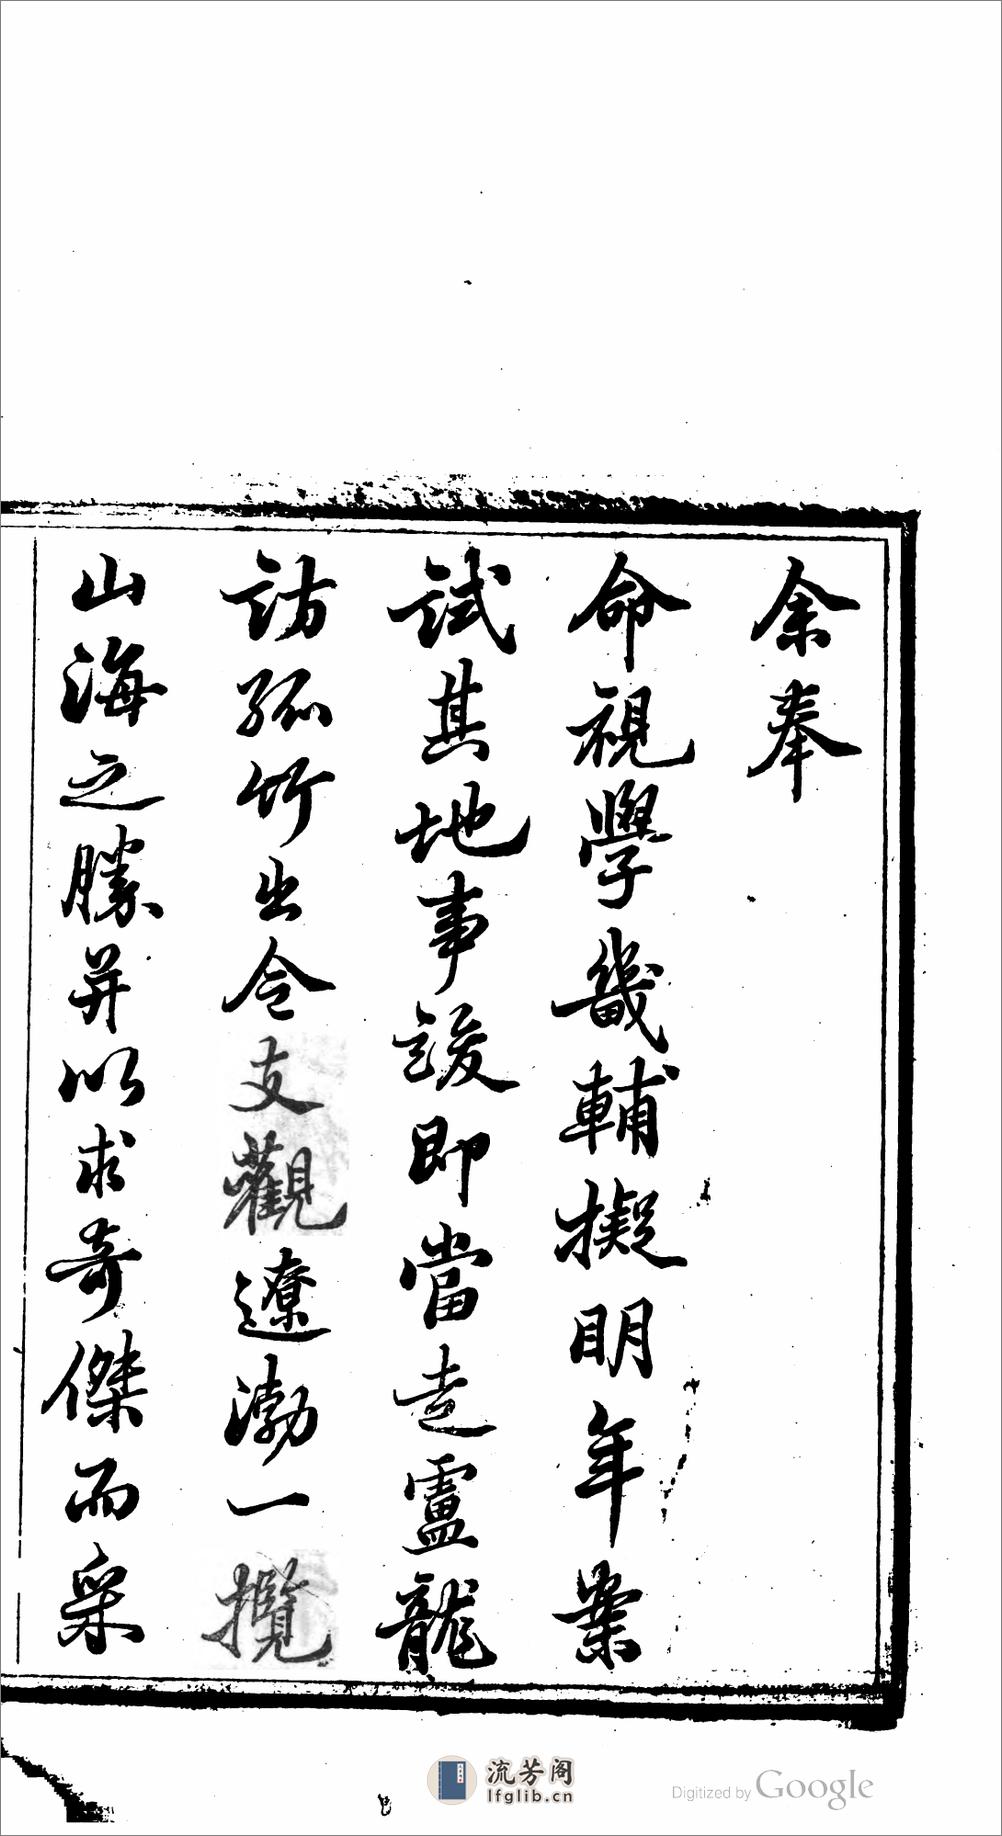 余奉
命視學畿輔擬明年案
試其地事竣即當走盧龍
訪孤竹出令支觀遼渤一攬
山海之勝并以求奇傑而采
流芳阁
lfglib.cn
Digitized by Google